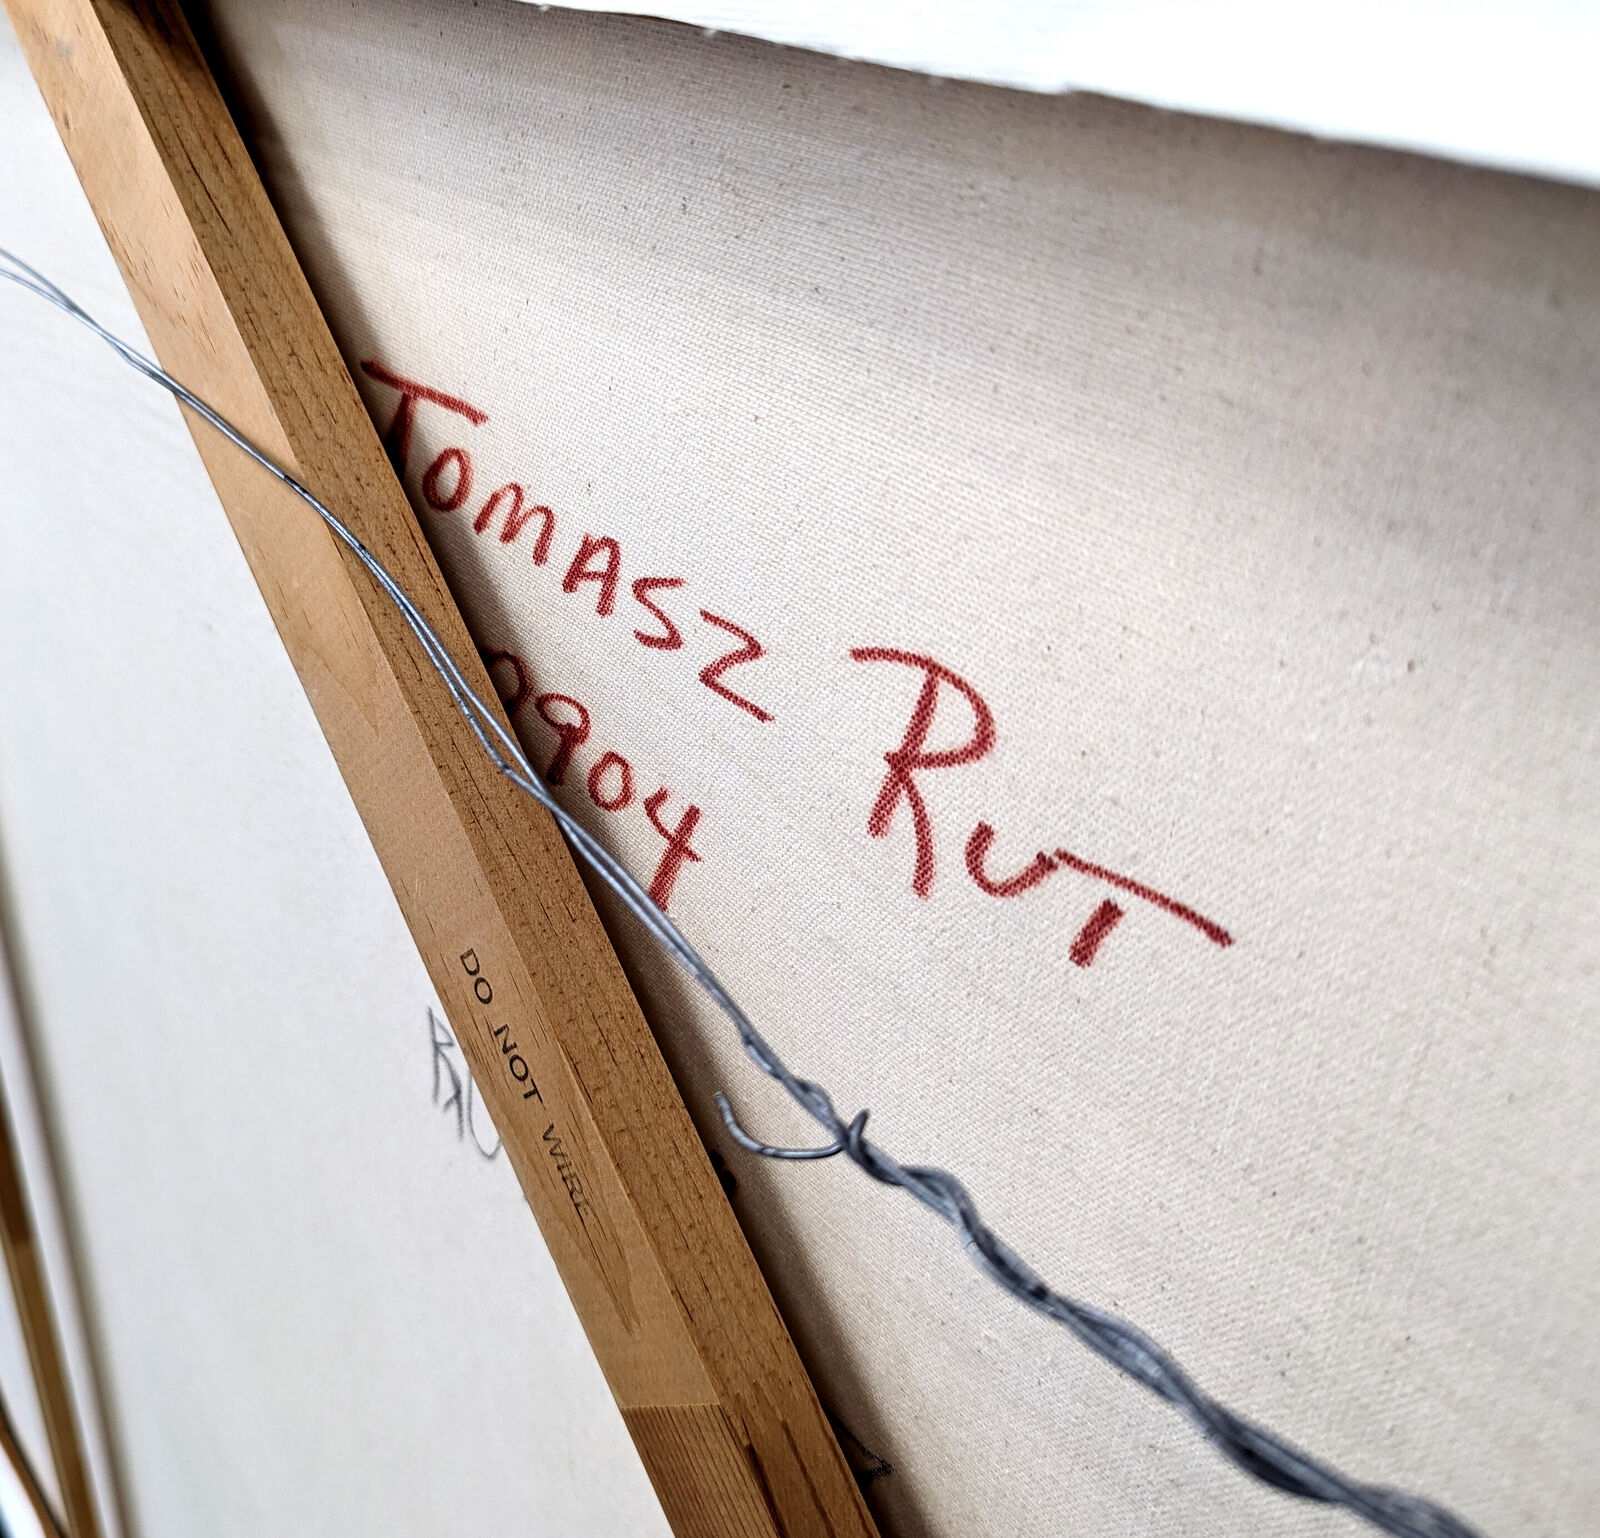 Tomasz Rut
9904
DO NOT WIRE